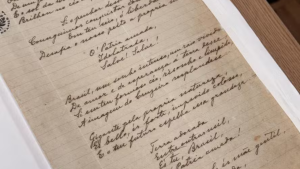 E o sol da
Brilhou no
Se o penhor
Conseguimos conquistar
Em teu seio, ó Liberdade,
Desafia o nosso peito a propria
O' Patria amada,
Idolatrada,
Salve! Salve!
Brasil, um sonho intenso, um raio vivido
De amor e de esperança á terra desce,
Si em teu formoso céo, risonho e limpido,
A imagem do Cruzeiro resplandece
Gigante pela propria natureza,
E's bello, és forte, impavido colosso,
E o teu futuro espelha essa grandeza
Terra adorada
Entre outras mil,
E's tu, Brasil,
O' Patria amada!
és mãe gentil